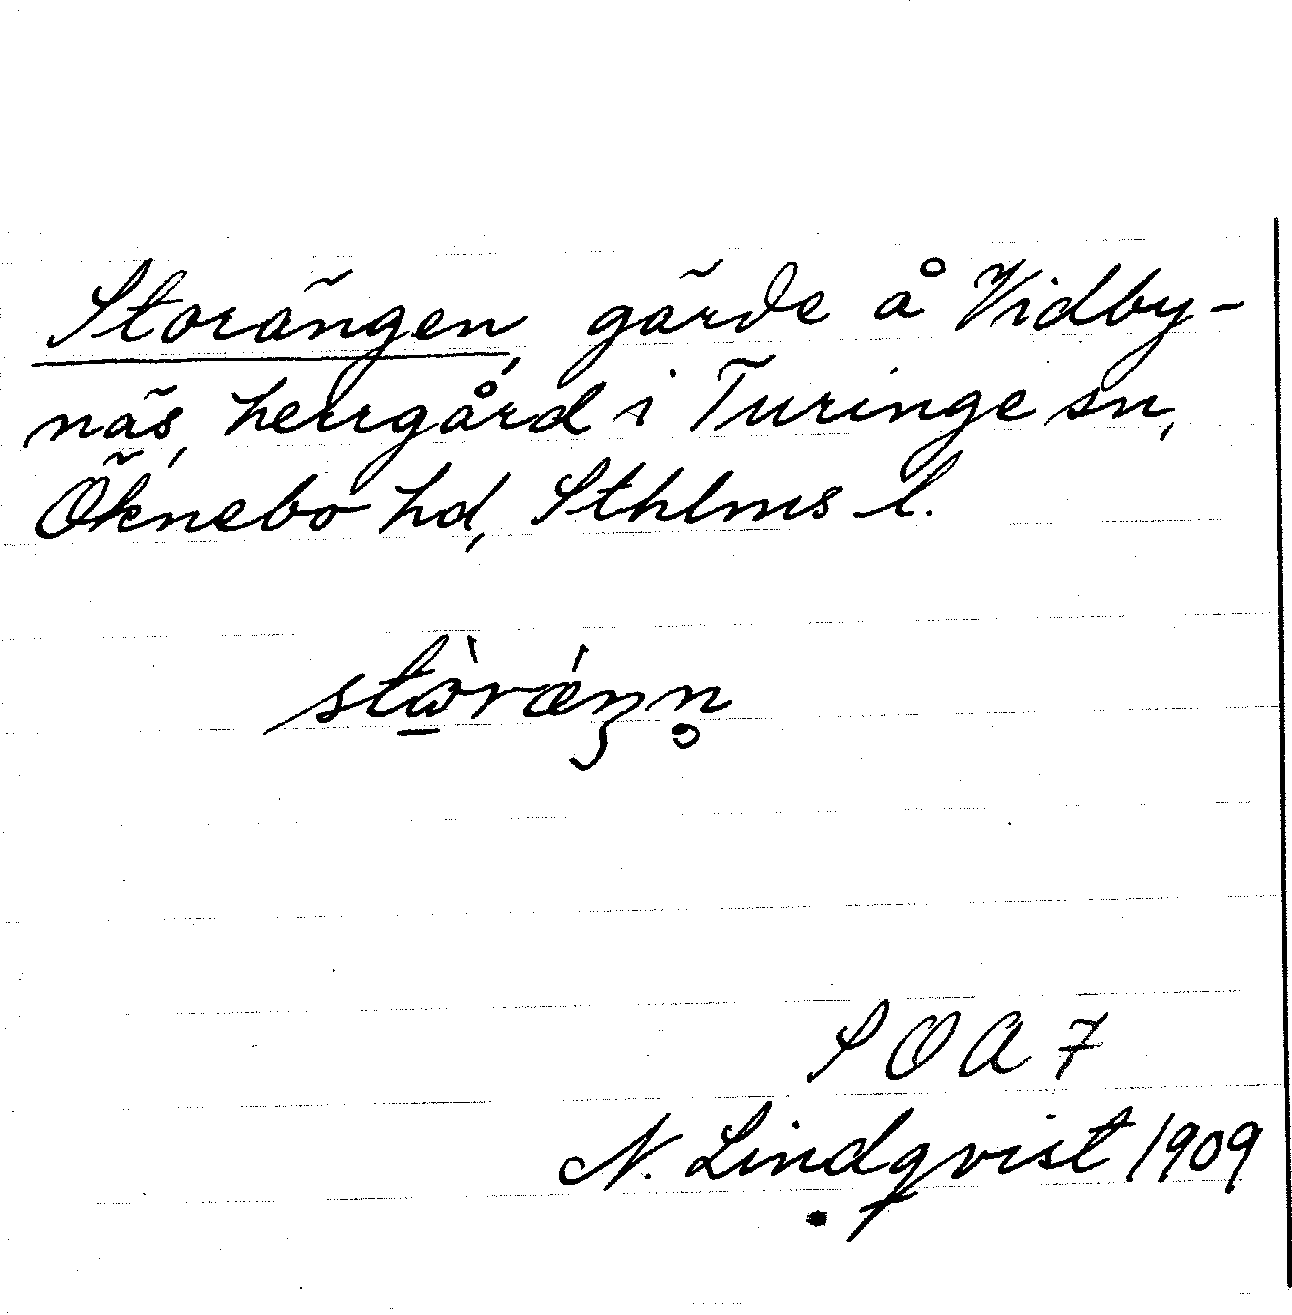 Storängen, gärde å Vidby-
näs, herrgård i Turinge sn,
Öknebo hd, Sthlms l.
stὼ̲rǽŋn̥
SOA 7
N. Lindqvist 1909